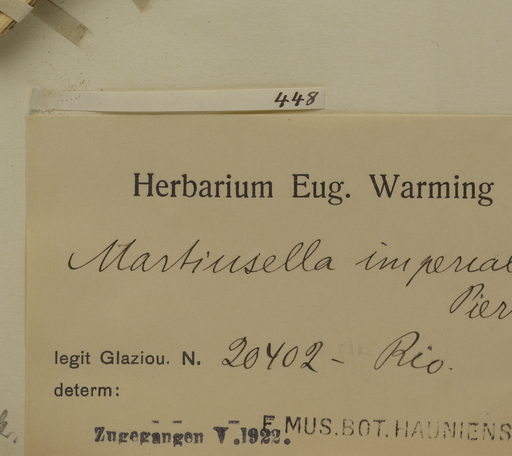 448
Herbarium Eug. Warming
Martiusella imperial
Pier
legit Glaziou. N. 20402 - Rio.
determ:
Zugegangen V. 1922.
E MUS. BOT. HAUNIENS